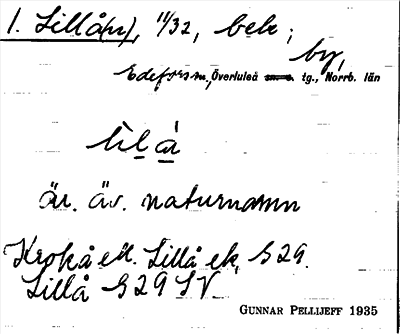 1. Lillå(n), 11/32, bek;
by,
Edefors sn, Överluleå tg., Norrb. län
lìlå
är. äv. naturnamn
Krokå ell. Lillå ek, G29.
Lillå G29 SV
GUNNAR PELLIJEFF 1935